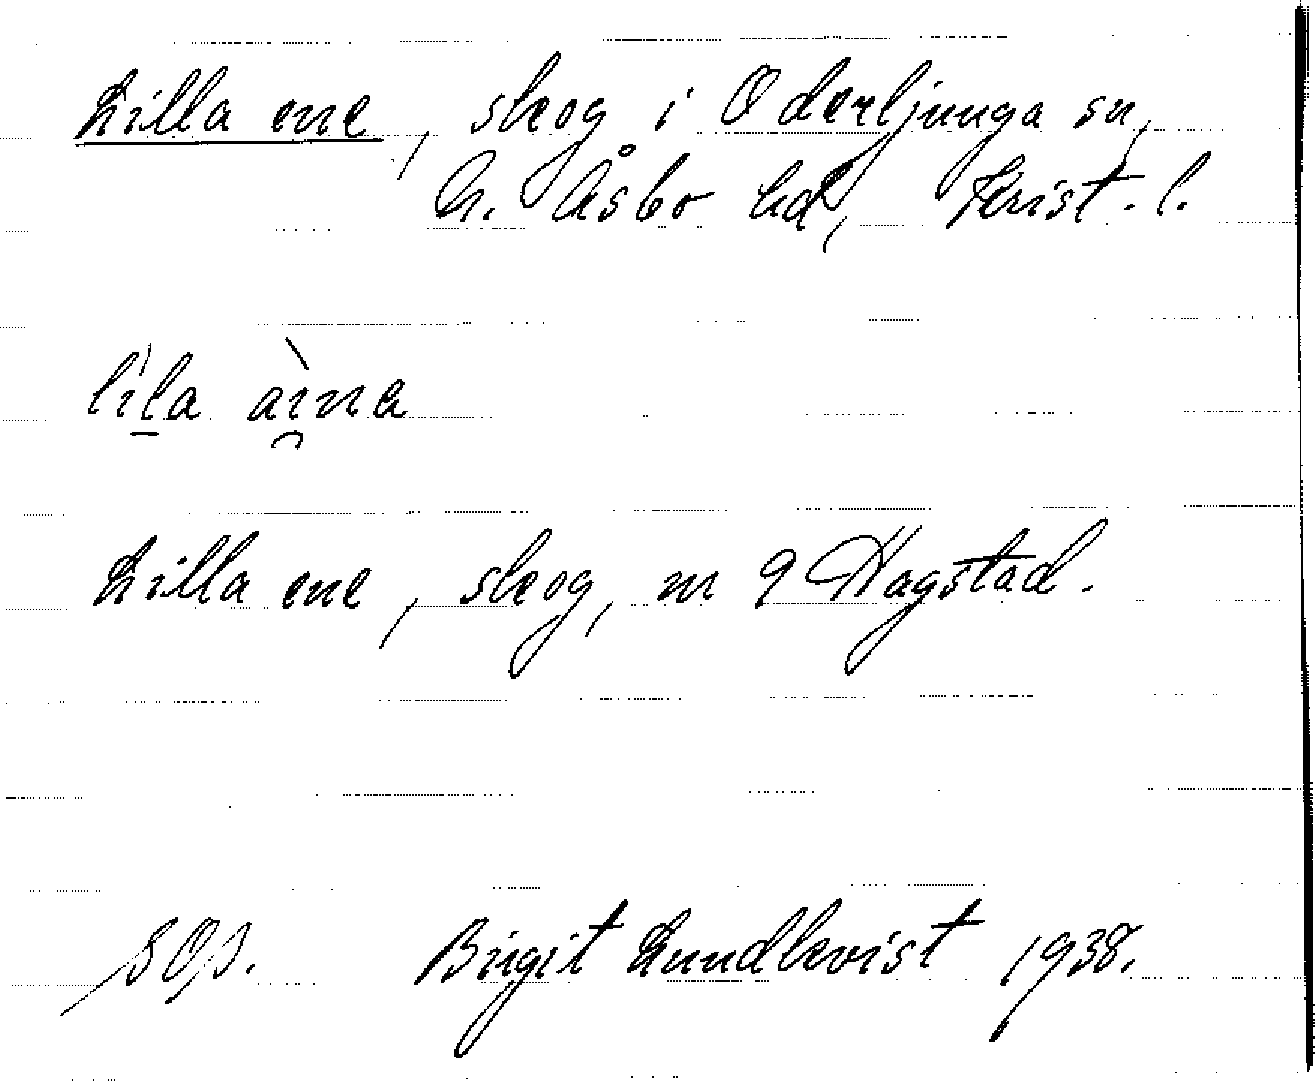 Lilla ene, skog i Oderljunga sn,
N. Åsbo hd, Krist. l.
lila àina
Lilla ene, skog, m 9 Hagstad.
Birgit Lundkvist 1938.